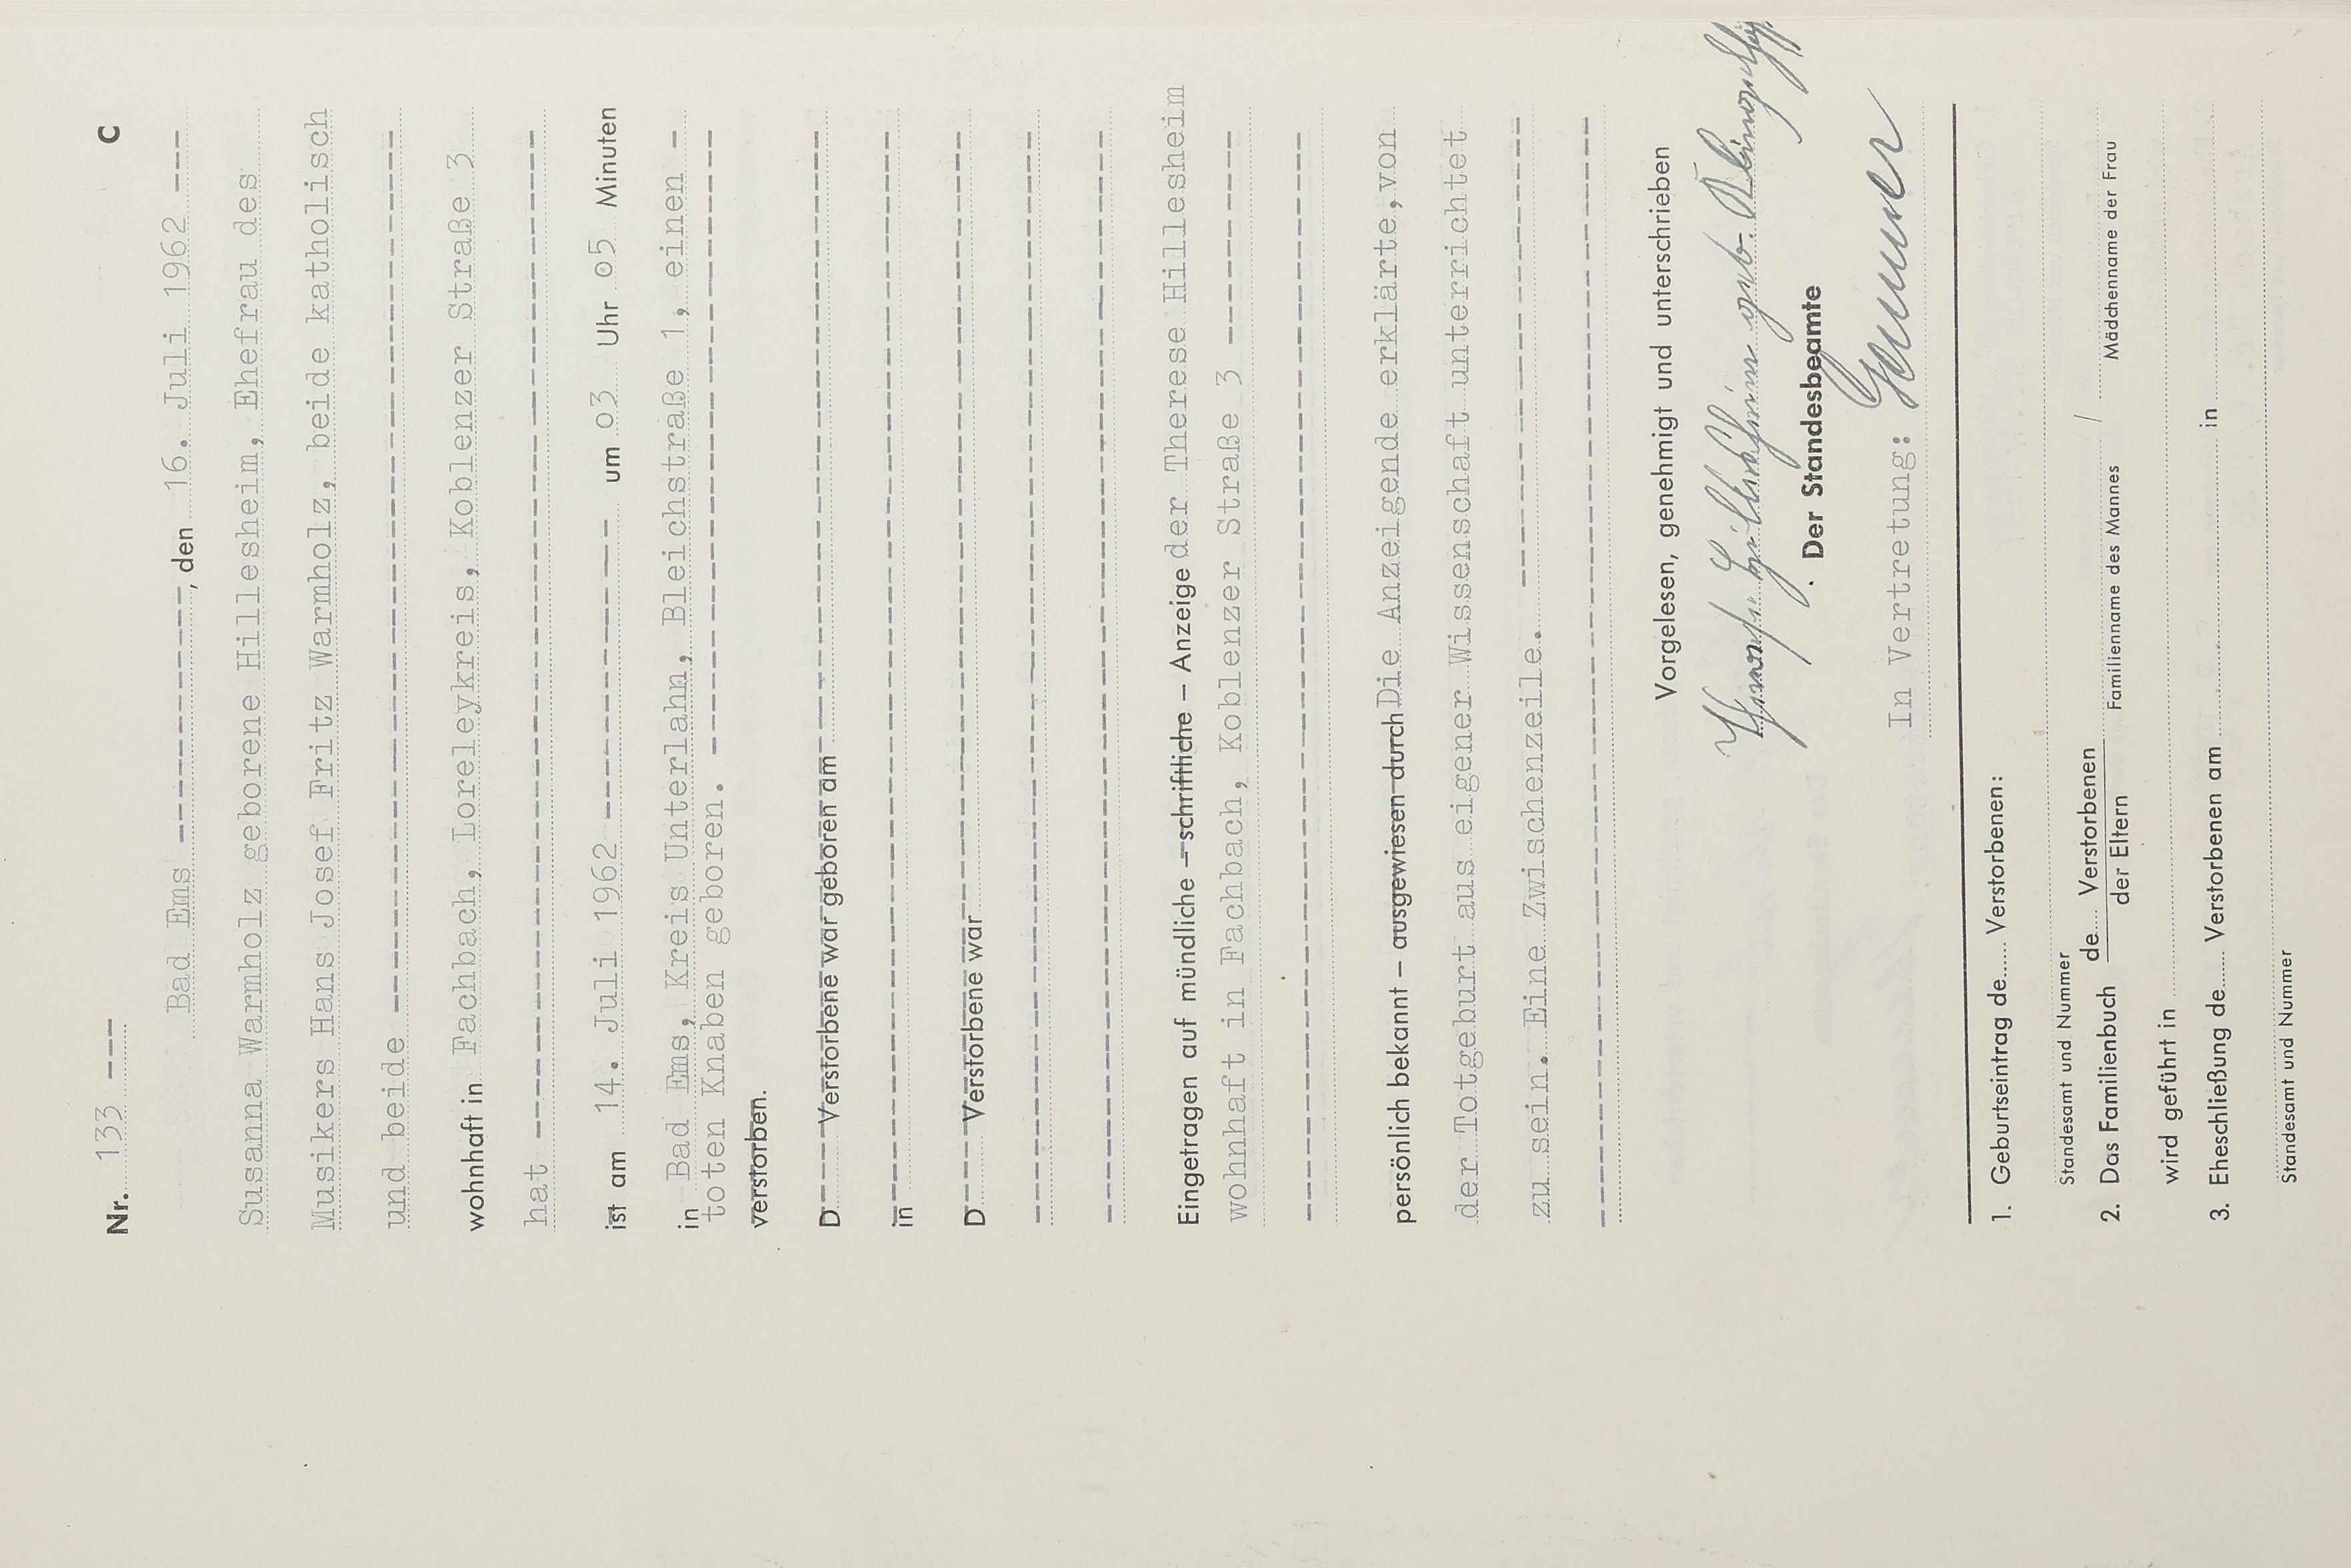 Nr. 133 --- C
Bad Ems -------------, den 16. Juli 1962 ---
Susanna Warmholz geborene Hillesheim, Ehefrau des
Musikers Hans Josef Fritz Warmholz, beide katholisch
und beide ---------------------------------------------
wohnhaft in Fachbach, Loreleykreis, Koblenzer Straße 3
hat ---------------------------------------------------
ist am 14. Juli 1962 --------------- um 03 Uhr 05 Minuten
in Bad Ems, Kreis Unterlahn, Bleichstraße 1, einen -
toten Knaben geboren. --------------------------------
verstorben.
D----- Verstorbene war geboren am ------------------------------
in ------------------------------------------------------
D----- Verstorbene war ----------------------------------------
------------------------------------------------------
------------------------------------------------------
Eingetragen auf mündliche – schriftliche – Anzeige der Therese Hillesheim
wohnhaft in Fachbach, Koblenzer Straße 3 -----------
------------------------------------------------------
persönlich bekannt – ausgewiesen durch Die Anzeigende erklärte, von
der Totgeburt aus eigener Wissenschaft unterrichtet
zu sein. Eine Zwischenzeile. -------------------------
------------------------------------------------------
Vorgelesen, genehmigt und unterschrieben
Therese Hillesheim geb.
Der Standesbeamte
In Vertretung:
1. Geburtseintrag de..... Verstorbenen:
Standesamt und Nummer
2. Das Familienbuch de.... Verstorbenen /
der Eltern Familienname des Mannes Mädchenname der Frau
wird geführt in
3. Eheschließung de..... Verstorbenen am in
Standesamt und Nummer